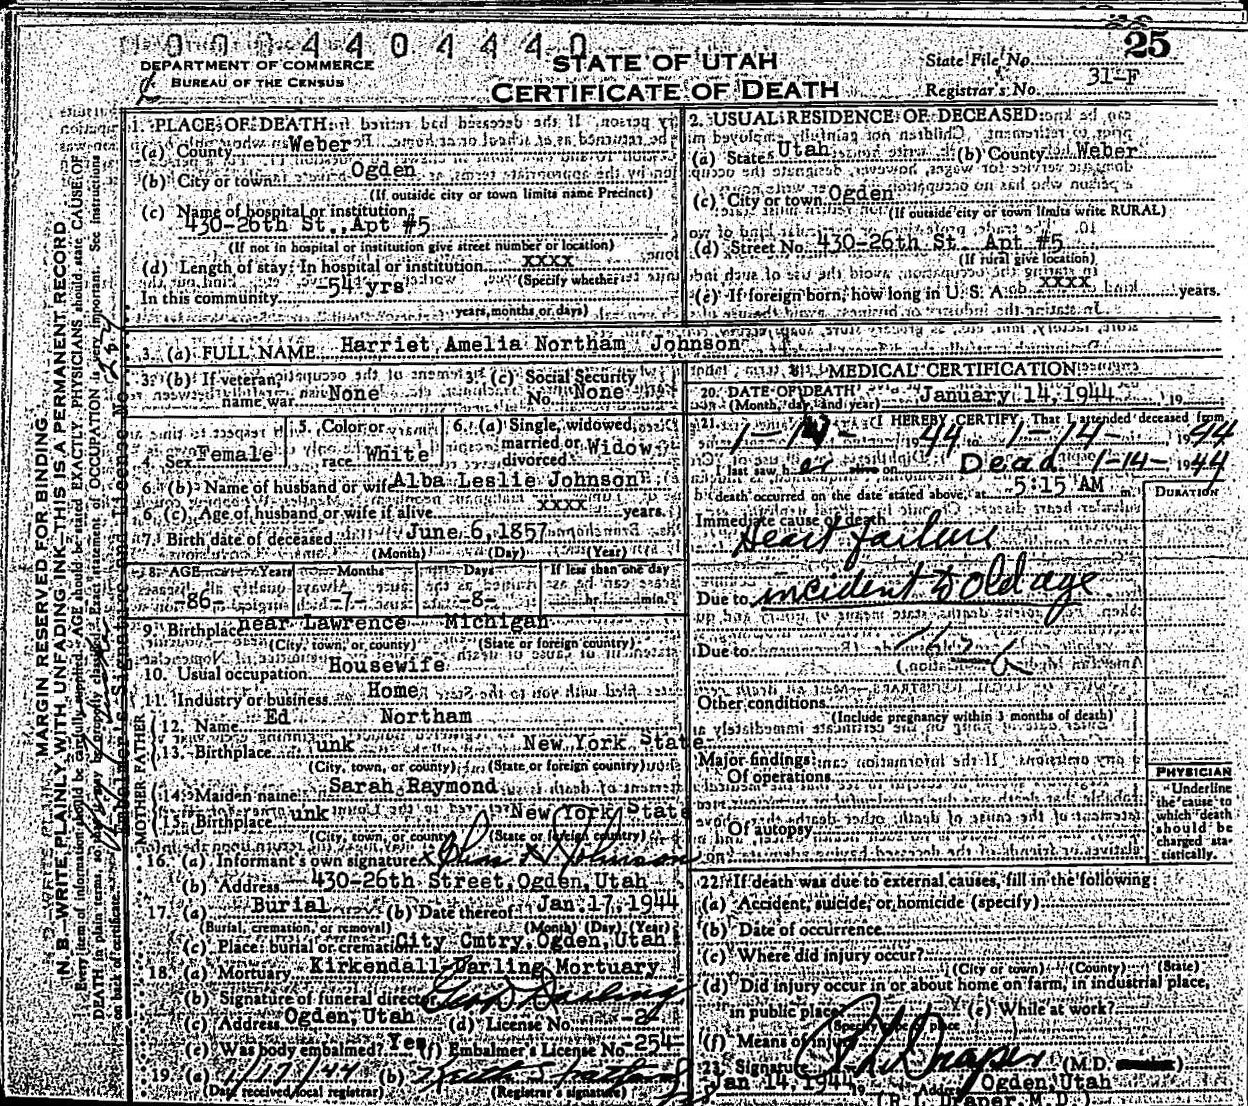 0 0 0 4 4 0 4 4 4 0
25
DEPARTMENT OF COMMERCE
BUREAU OF THE CENSUS
STATE OF UTAH
CERTIFICATE OF DEATH
State File No.
Registrar's No. 31-F
MARGIN RESERVED FOR BINDING
N. B.—WRITE PLAINLY WITH UNFADING INK—THIS IS A PERMANENT RECORD
1. PLACE OF DEATH:
(a) County Weber
(b) City or town Ogden
(If outside city or town limits name Precinct)
(c) Name of hospital or institution
430-26th St., Apt #5
(If not in hospital or institution give street number or location)
(d) Length of stay: In hospital or institution xxxx
(Specify whether
In this community 54 yrs
years, months or days)
2. USUAL RESIDENCE OF DECEASED:
(a) State Utah (b) County Weber
(c) City or town Ogden
(If outside city or town limits write RURAL)
(d) Street No. 430-26th St. Apt #5
(If rural give location)
(e) If foreign born, how long in U. S. A. xxxx years.
3. (a) FULL NAME Harriet Amelia Northam Johnson
3. (b) If veteran, name war None
3. (c) Social Security No. None
4. Sex Female
5. Color or race White
6. (a) Single, widowed, married or divorced Widow
6. (b) Name of husband or wife Alba Leslie Johnson
6. (c) Age of husband or wife if alive xxxx years.
7. Birth date of deceased June 6, 1857
(Month) (Day) (Year)
8. AGE Years Months Days If less than one day
-86- -7- -8- hr. min.
9. Birthplace near Lawrence Michigan
(City, town, or county) (State or foreign country)
10. Usual occupation Housewife
11. Industry or business Home
FATHER
12. Name Ed Northam
13. Birthplace unk New York State
(City, town, or county) (State or foreign country)
MOTHER
14. Maiden name Sarah Raymond
15. Birthplace unk New York State
(City, town, or county) (State or foreign country)
16. (a) Informant's own signature Chas Johnson
(b) Address 430-26th Street, Ogden, Utah
17. (a) Burial (b) Date thereof Jan. 17, 1944
(Burial, cremation, or removal) (Month) (Day) (Year)
(c) Place: burial or cremation City Cmtry, Ogden, Utah
18. (a) Mortuary Kirkendall Darling Mortuary
(b) Signature of funeral director Darling
(c) Address Ogden, Utah (d) License No.
(e) Was body embalmed? Yes (f) Embalmer's License No. -254-
19. (a) 1/17/44 (b)
(Date received local registrar) (Registrar's signature)
MEDICAL CERTIFICATION
20. DATE OF DEATH January 14, 1944 19
(Month, day, and year)
21. I HEREBY CERTIFY, That I attended deceased from
1-14- 1944 to 1-14- 1944
I last saw her on Dead 1-14- 1944
death occurred on the date stated above, at 5:15 AM m.
DURATION
Immediate cause of death
Heart failure
Due to incident to old age
Due to
Other conditions
(Include pregnancy within 3 months of death)
Major findings:
Of operations
Of autopsy
PHYSICIAN
Underline the cause to which death should be charged statistically.
22. If death was due to external causes, fill in the following:
(a) Accident, suicide, or homicide (specify)
(b) Date of occurrence
(c) Where did injury occur?
(City or town) (County) (State)
(d) Did injury occur in or about home on farm, in industrial place,
in public place (e) While at work?
(Specify type of place
(f) Means of injury
23. Signature R L Draper (M.D.
Jan 14, 1944 Address Ogden, Utah
(R. L. Draper, M.D.)